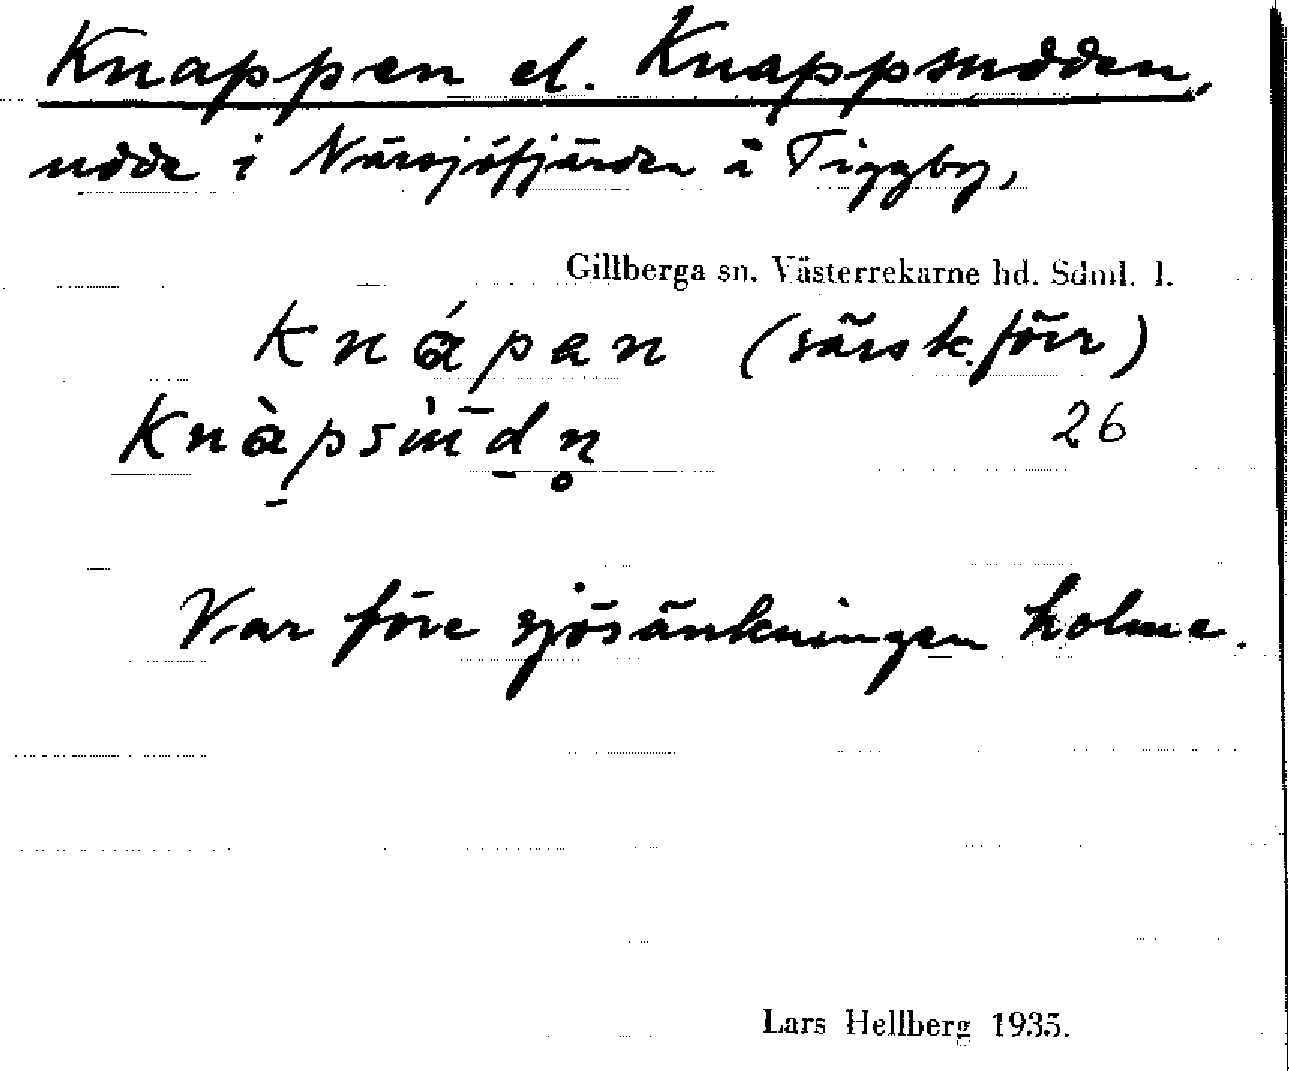 Knappen el. Knappsudden,
udde i Närsjöfjärden å Tiggby,
Gillberga sn. Västerrekarne hd. Sdml. l.
Knápan (särsk. förr)
Knàpsùdn̥ 26
Var före sjösänkningen holme.
Lars Hellberg 1935.